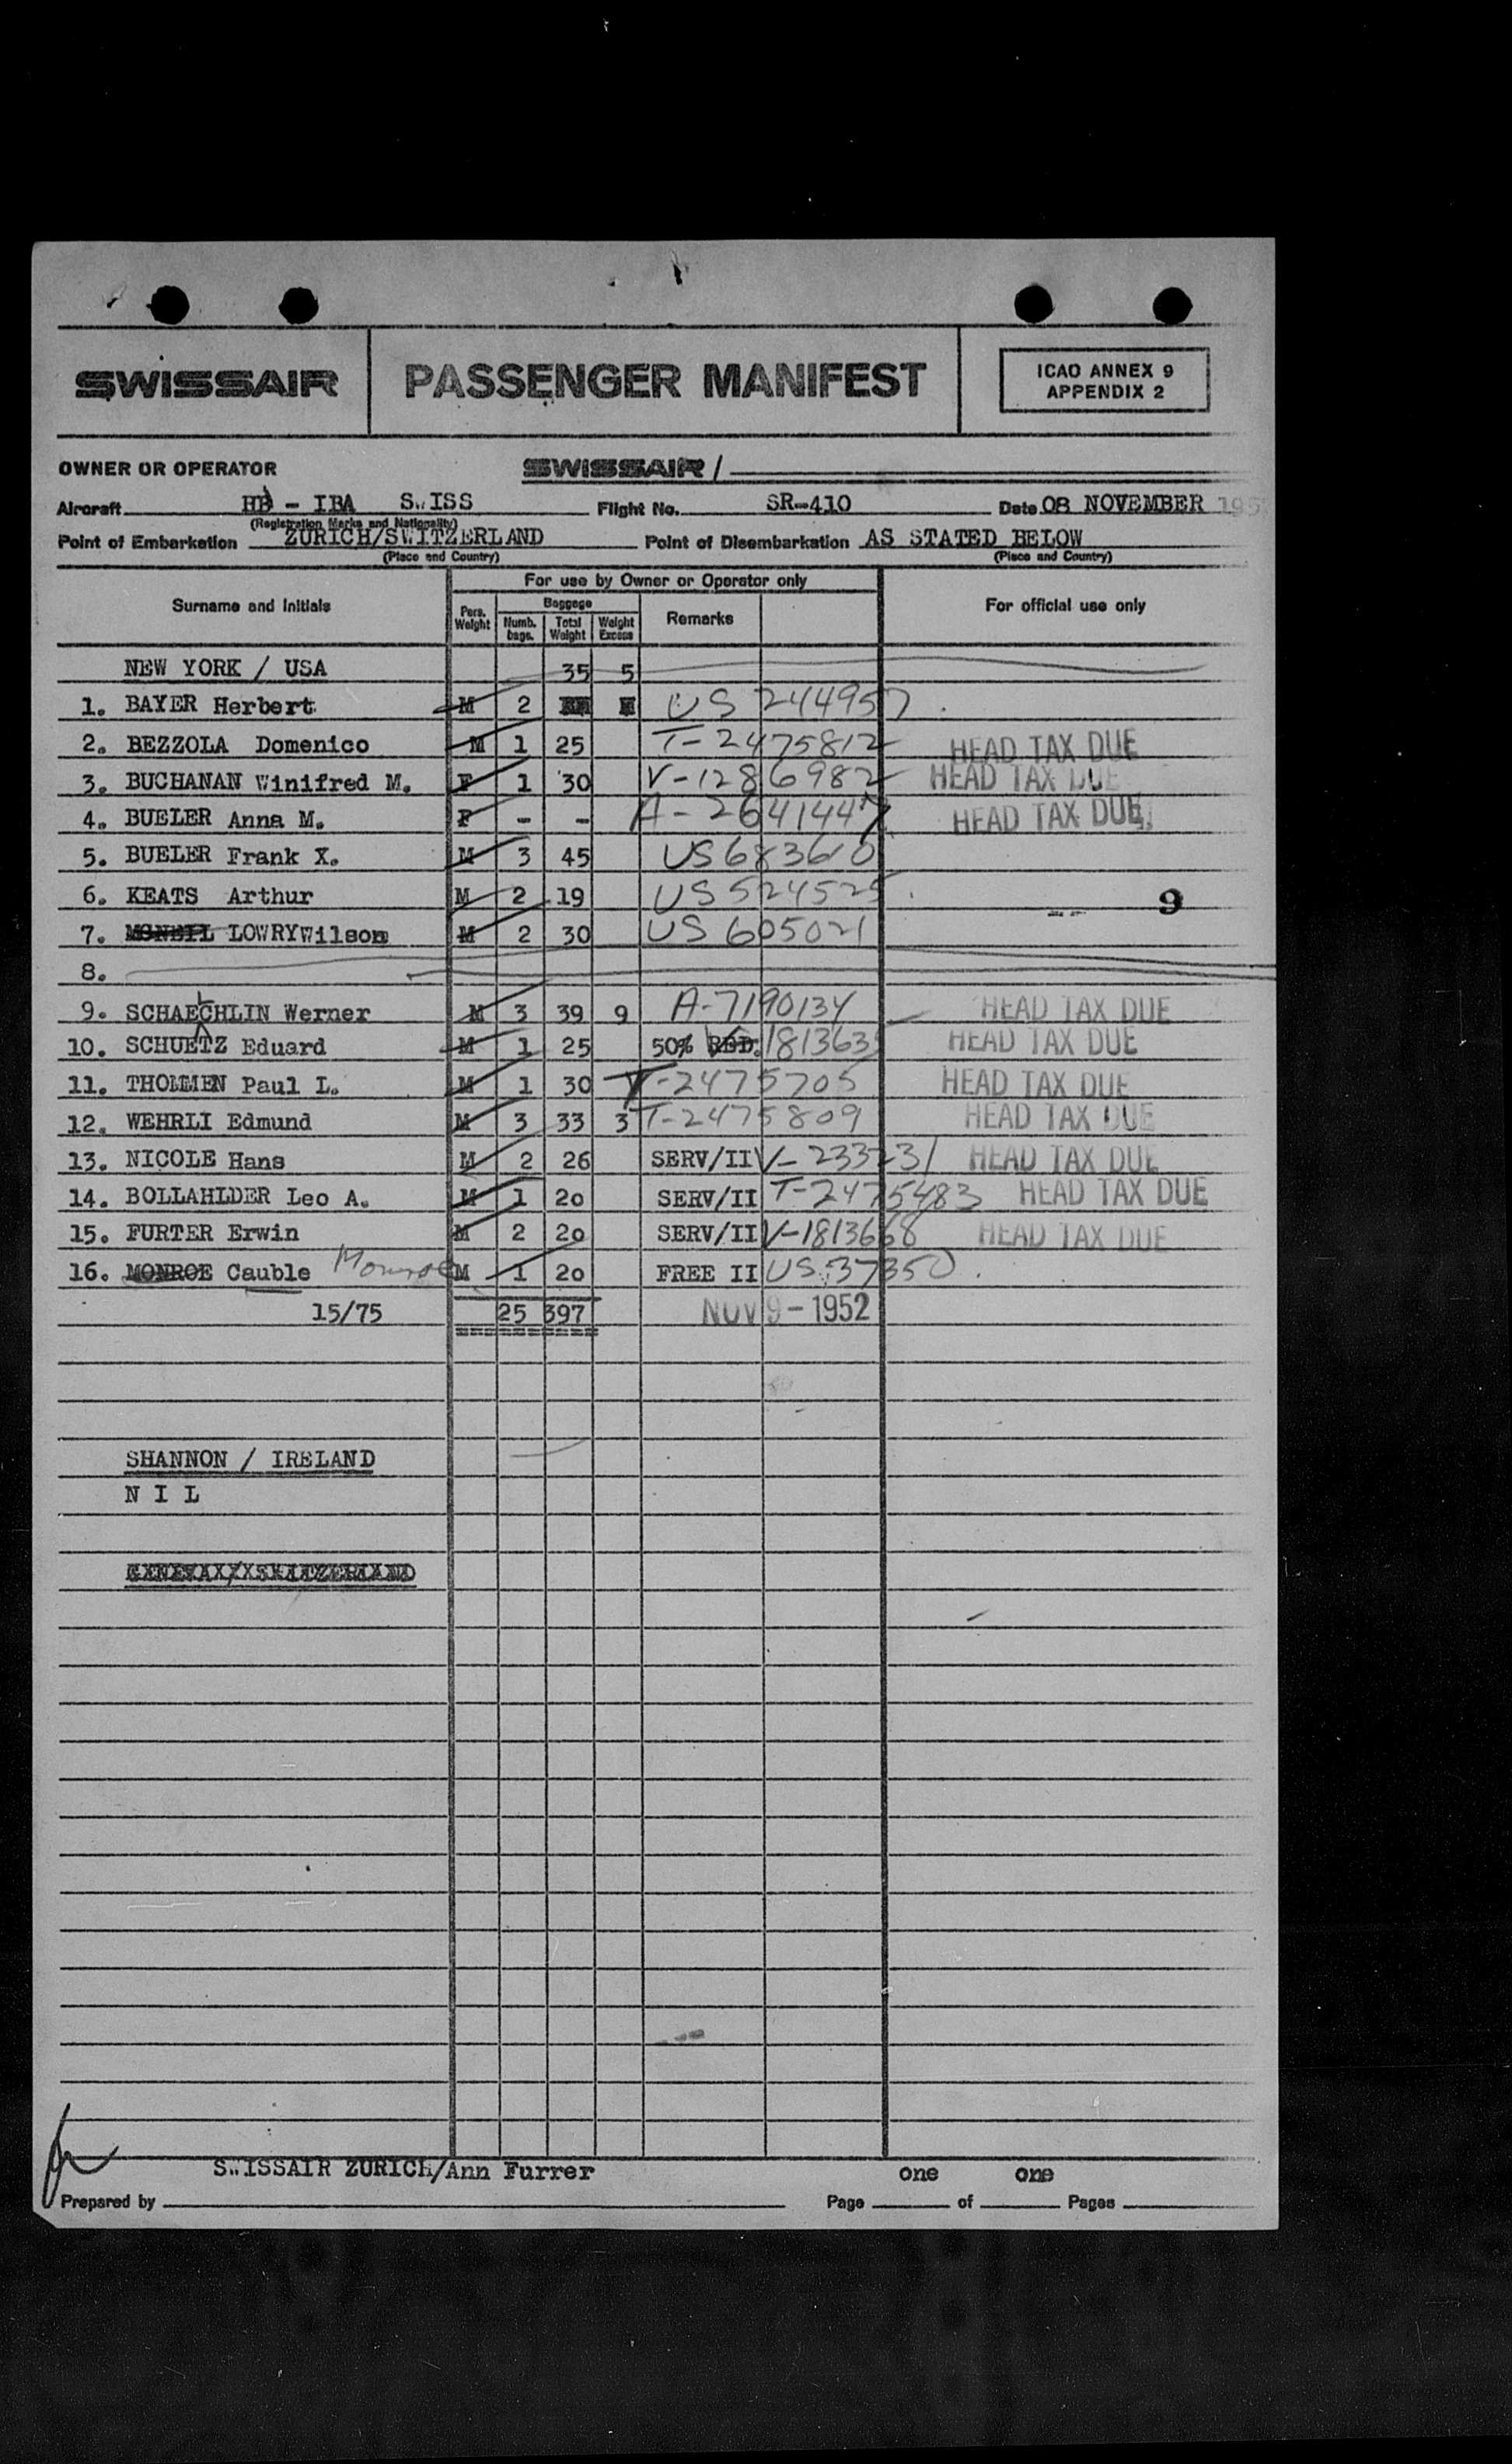 SWISSAIR PASSENGER MANIFEST ICAO ANNEX 9
APPENDIX 2
OWNER OR OPERATOR SWISSAIR /
Aircraft HB - IBA SWISS Flight No. SR-410 Date 08 NOVEMBER 195
(Registration Marks and Nationality)
Point of Embarkation ZURICH/SWITZERLAND Point of Disembarkation AS STATED BELOW
(Place and Country) (Place and Country)
For use by Owner or Operator only
Surname and Initials Pers. Weight Baggage Remarks For official use only
Numb. bags. Total Weight Weight Excess
NEW YORK / USA 35 5
1. BAYER Herbert M 2 US 244957
2. BEZZOLA Domenico M 1 25 T-2475812 HEAD TAX DUE
3. BUCHANAN Winifred M. F 1 30 V-1286982 HEAD TAX DUE
4. BUELER Anna M. F - - A-2641447 HEAD TAX DUE
5. BUELER Frank X. M 3 45 US 683610
6. KEATS Arthur M 2 19 US 524525 9
7. MCNEIL LOWRY Wilson M 2 30 US 605021
8.
9. SCHAECHLIN Werner M 3 39 9 A-7190134 HEAD TAX DUE
10. SCHUETZ Eduard M 1 25 50% RED. HEAD TAX DUE
11. THOMMEN Paul L. M 1 30 T-2475705 HEAD TAX DUE
12. WEHRLI Edmund M 3 33 3 T-2475809 HEAD TAX DUE
13. NICOLE Hans M 2 26 SERV/II V-233231 HEAD TAX DUE
14. BOLLAHLDER Leo A. M 1 20 SERV/II T-2475483 HEAD TAX DUE
15. FURTER Erwin M 2 20 SERV/II V-1813668 HEAD TAX DUE
16. MONROE Cauble Monroe M 1 20 FREE II US 37350
15/75 25 397 NOV 9-1952
SHANNON / IRELAND
N I L
SWISSAIR ZURICH/Ann Furrer one one
Prepared by Page of Pages